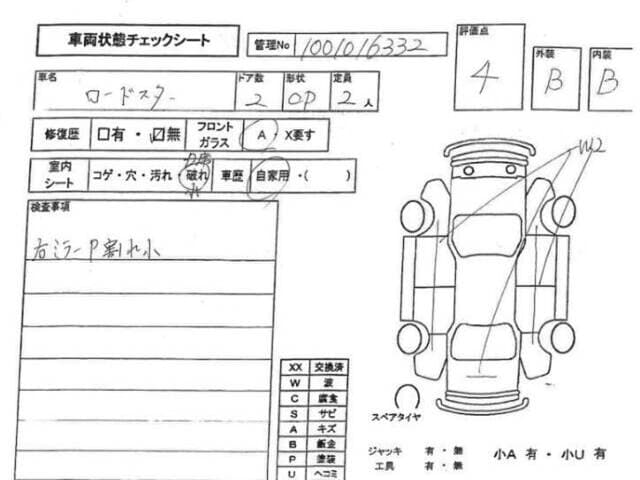 車両状態チェックシート
管理No 1001016332
評価点 4
外装 B
内装 B
車名 ロードスター
ドア数 2
形状 OP
定員 2人
修復歴 □有・☑無
フロントガラス A・X要す
室内シート コゲ・穴・汚れ・破れ 小
車歴 自家用・( )
検査事項
右ミラーP割れ小
W2
XX 交換済
W 波
C 腐食
S サビ
A キズ
B 鈑金
P 塗装
U ヘコミ
スペアタイヤ
ジャッキ 有・無
工具 有・無
小A 有・小U 有